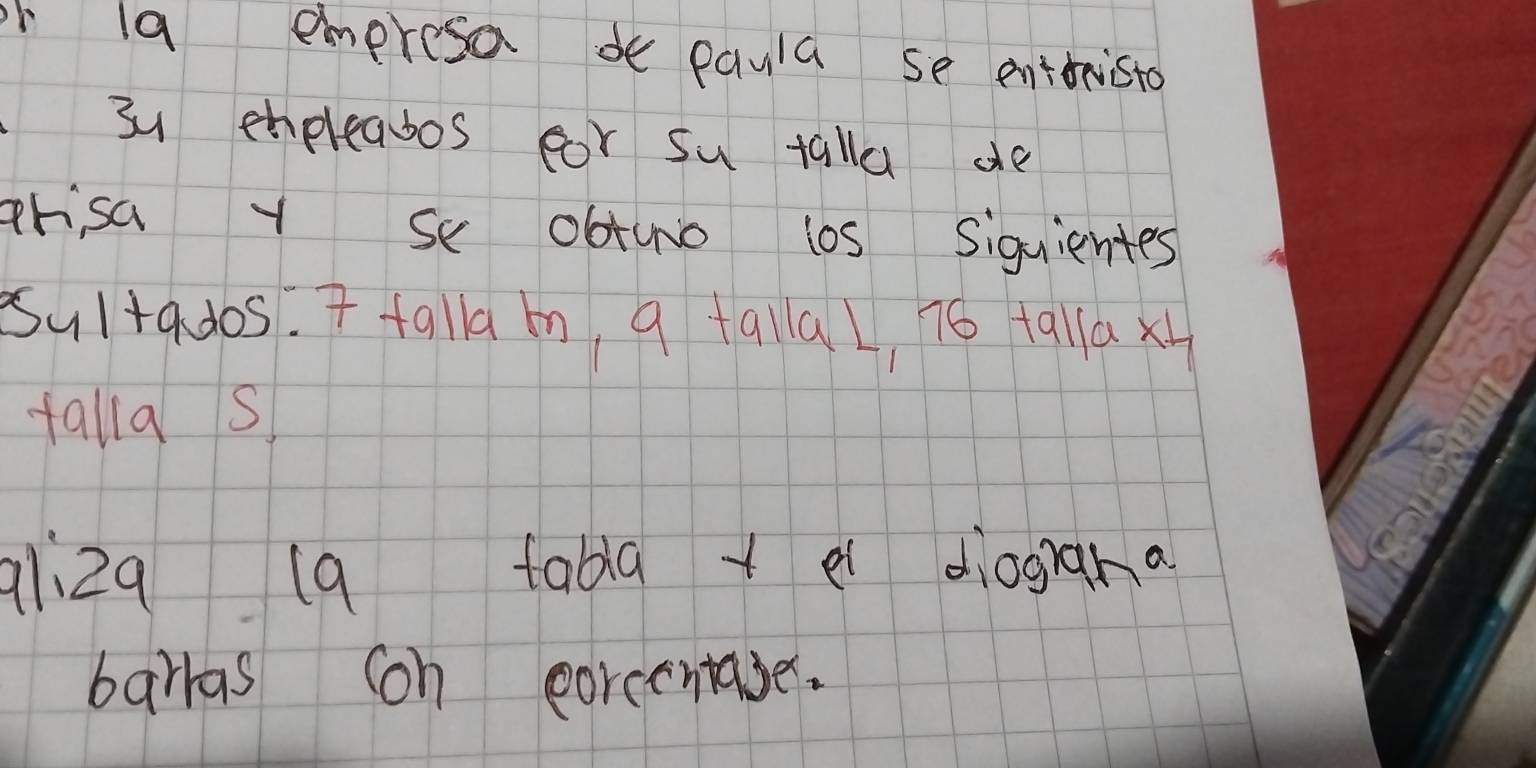 la empresa de paula se entrevisto
34 empleados por su talla de
arisa y se obtuvo los siguientes
sultados: 7 talla m, 9 talla L, 16 talla xL
talla S,
aliza la tabla y el diograma
barras con porcentaje.